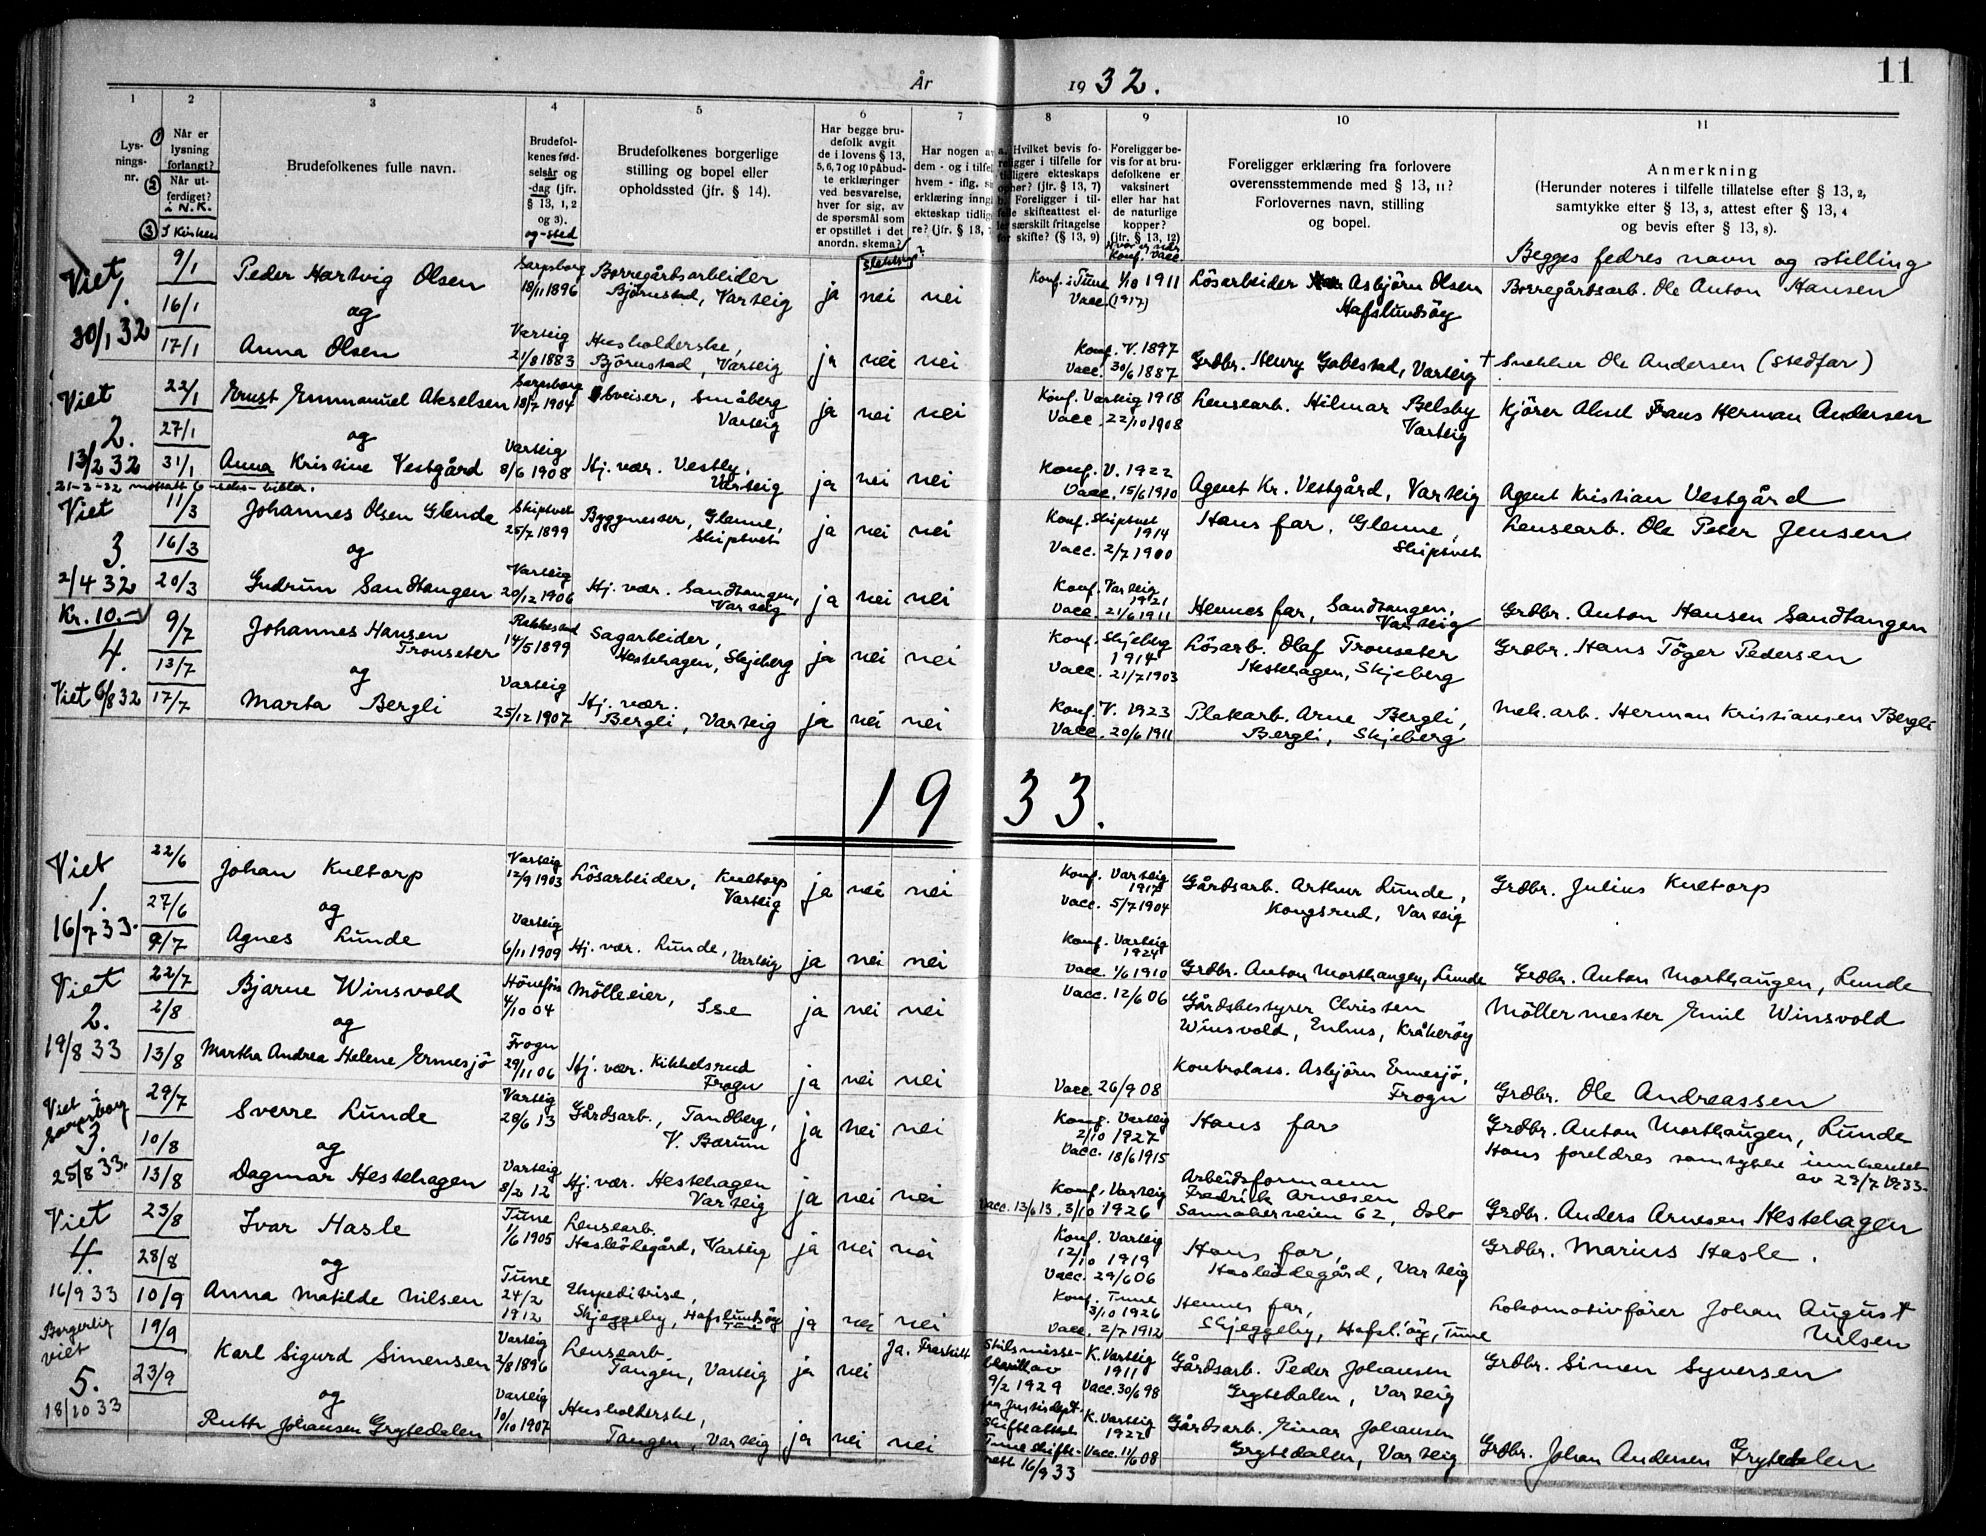 År 1932.
11
1 2 3 4 5 6 7 8 9 10 11
Lys-
nings-
nr.
① Når er
lysning
forlangt?
② Når ut-
ferdiget?
i N.K.
③ I Kirken
Brudefolkenes fulle navn.
Brudefol-
kenes fød-
selsår og
-dag (jfr.
§ 13, 1, 2
og 3).
og -sted
Brudefolkenes borgerlige
stilling og bopel eller
opholdssted (jfr. § 14).
Har begge bru-
defolk avgit
de i lovens § 13,
5, 6, 7 og 10 påbud-
te erklæringer
ved besvarelse,
hver for sig, av
de spørsmål som
er opstillet i det
anordn. skema?
Slektskap?
Har nogen a
dem - og i tilfel
hvem - iflg. s
erklæring inng
ekteskap tidlig
re? (jfr. § 13,
a. Hvilket bevis fo-
religger i tilfelle for
tidligere ekteskaps
ophør? (jfr. § 13, 7)
b. Foreligger i til-
felle skifteattest el-
ler særskilt fritagelse
for skifte? (§ 13, 9)
Foreligger be-
vis for at bru-
defolkene er
vaksinert
eller har hat
de naturlige
kopper?
(jfr. § 13, 12)
Konf. Vacc.
Foreligger erklæring fra forlovere
overensstemmende med § 13, 11?
Forlovernes navn, stilling
og bopel.
Anmerkning
(Herunder noteres i tilfelle tillatelse efter § 13, 2,
samtykke efter § 13, 3, attest efter § 13, 4
og bevis efter § 13, 8).
Begges fedres navn og stilling
Viet 1. 30/1 32
9/1 16/1 17/1
Peder Hartvig Olsen
Sarpsborg 18/11 1896
Borregårdsarbeider
Bjørnstad, Varteig
ja nei nei
Konf. i Tune 1/10 1911
Vacc. (1917)
Lösarbeider Asbjörn Olsen
Hafslundsöy
Borregårdsarb. Ole Anton Hansen
og
Anna Olsen
Varteig 21/8 1883
Husholderske,
Björnstad, Varteig
ja nei nei
Konf. V. 1897
Vacc. 30/6 1887
Grdbr. Henry Gabestad, Varteig
+ Snekker Ole Andersen (stedfar)
Viet 2. 13/2 32
22/1 27/1 31/1
Ernst Emmanuel Akselsen
Sarpsborg 18/7 1904
småberg
Varteig
ja nei nei
Konf. Varteig 1918
Vacc. 22/10 1908
Lensearb. Hilmar Belsby
Varteig
Kjörer Frans Herman Andersen
og
Anna Kristine Vestgård
Varteig 8/6 1908
Hj. vær. Vestby,
Varteig
ja nei nei
Konf. V. 1922
Vacc. 15/6 1910
Agent Kr. Vestgård, Varteig
Agent Kristian Vestgård
21-3-32
Viet 3. 2/4 32
11/3 16/3 20/3
Johannes Olsen Glende
Skiptvet 25/7 1899
Byggmester, Glenne,
Skiptvet
ja nei nei
Konf. Skiptvet 1914
Vacc. 2/7 1900
Hans far, Glenne,
Skiptvet
Lensearb. Ole Peter Jensen
og
Gudrun Sandtangen
Varteig 20/12 1906
Hj. vær. Sandtangen,
Varteig
ja nei nei
Konf. Varteig 1921
Vacc. 21/6 1911
Hennes far, Sandtangen,
Varteig
Grdbr. Anton Hansen Sandtangen
Kr. 10.-
4. Viet 6/8 32
9/7 13/7 17/7
Johannes Hansen
Tronseter
Rakkestad 14/5 1899
Sagarbeider,
Hestehagen, Skjeberg
ja nei nei
Konf. Skjeberg 1914
Vacc. 21/7 1903
Lösarb. Olaf Tronseter
Hestehagen, Skjeberg
Grdbr. Hans Töger Pedersen
og
Marta Bergli
Varteig 25/12 1907
Hj. vær.
Bergli, Varteig
ja nei nei
Konf. V. 1923
Vacc. 20/6 1911
Platearb. Arne Bergli,
Bergli, Skjeberg
Mek. arb. Herman Kristiansen Bergli
1933.
Viet 1. 16/7 33.
22/6 27/6 9/7
Johan Kultorp
Varteig 12/9 1903
Lösarbeider, Kultorp
Varteig
ja nei nei
Konf. Varteig 1917
Vacc. 5/7 1904
Gårdsarb. Arthur Lunde,
Kongsrud, Varteig
Grdbr. Julius Kultorp
og
Agnes Lunde
Varteig 6/11 1909
Hj. vær. Lunde, Varteig
ja nei nei
Konf. Varteig 1924
Vacc. 1/6 1910
Grdbr. Anton Morthaugen, Lunde
Grdbr. Anton Morthaugen, Lunde
Viet 2. 19/8 33
22/7 2/8 13/8
Bjarne Winsvold
Hönefoss 4/10 04
Mölleeier, Ise
ja nei nei
Vacc. 12/6 06
Gårdsbestyrer Christen
Winsvold, Enhus, Kråkeröy
Möllermester Emil Winsvold
og
Martha Andrea Helene Ermesjö
Frogn 29/11 06
Hj. vær. Kikkelsrud
Frogn
ja nei nei
Vacc. 26/9 08
Kontrolass. Asbjörn Ermesjö,
Frogn
Grdbr. Ole Andreassen
Viet i Sarpsborg 3. 25/8 33.
29/7 10/8 13/8
Sverre Lunde
Varteig 28/6 13
Gårdsarb., Tandberg,
V. Bærum
ja nei nei
Konf. Varteig 2/10 1927
Vacc. 18/6 1915
Hans far
Grdbr. Anton Morthaugen, Lunde
Hans foreldres samtykke innhentet
av 29/7 1933.
og
Dagmar Hestehagen
Varteig 8/2 12
Hj. vær. Hestehagen
Varteig
ja nei nei
Konf. Varteig
Vacc. 13/6 13. 3/10 1926
Arbeidsformann
Fredrik Arnesen
Sannakerveien 62, Oslo
Grdbr. Anders Arnesen Hestehagen
Viet 4. 16/9 33
23/8 28/8 10/9
Ivar Hasle
Tune 1/6 1905
Lensearb.
Hasleödegård, Varteig
ja nei nei
Konf. Varteig 12/10 1919
Vacc. 29/6 06
Hans far,
Hasleödegård, Varteig
Grdbr. Marius Hasle.
og
Anna Matilde Nilsen
Tune 24/2 1912
Ekspeditrise,
Skjeggeby, Hafslundsöy
Tune
ja nei nei
Konf. Tune 3/10 1926
Vacc. 2/7 1912
Hennes far,
Skjeggeby, Hafsl.öy, Tune
Lokomotivfører Johan August
Nilsen
Borgerlig viet 5. 18/10 33
19/9 23/9
Karl Sigurd Simensen
Varteig 2/8 1896
Lensearb.
Tangen, Varteig
ja nei Ja. Fraskilt
Skilsmisse-
bevill. av
9/2 1929
fra Justisdept.
Skifteattest
Tune skifte-
rett 16/9 33
K. Varteig 1911
Vacc. 30/6 98
Gårdsarb. Peder Johansen
Grytedalen, Varteig
Grdbr. Simen Syversen
og
Ruth Johansen Grytedalen
Varteig 10/10 1907
Husholderske,
Tangen, Varteig
ja nei nei
K. Varteig 1922
Vacc. 11/6 08
Gårdsarb. Einar Johansen
Grytedalen, Varteig
Grdbr. Johan Andersen Grytedalen